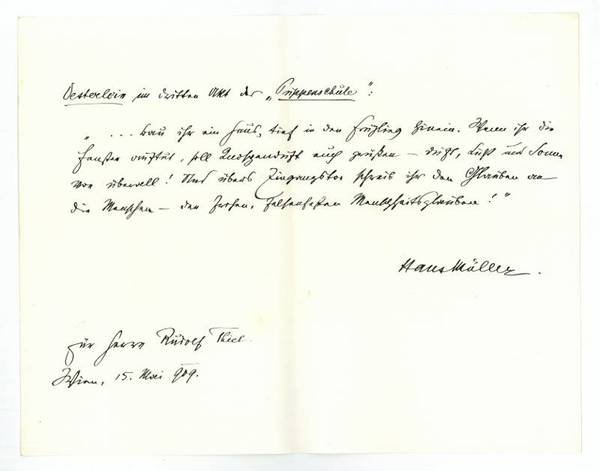 Oesterlein im dritten Akt der „Puppenschule“:
„ ... bau ihr ein Haus, tief in den Frühling hinein. Wenn ihr die
Fenster auftut, soll Knospenduft euch grüßen – Duft, Luft und Sonne
von überall! Und übers Eingangstor schreib ihr den Glauben an
die Menschen – den hohen, felsenfesten Menschheitsglauben!“
Hans Müller.
für Herrn Rudolf Thiel.
Wien, 15. Mai 909.